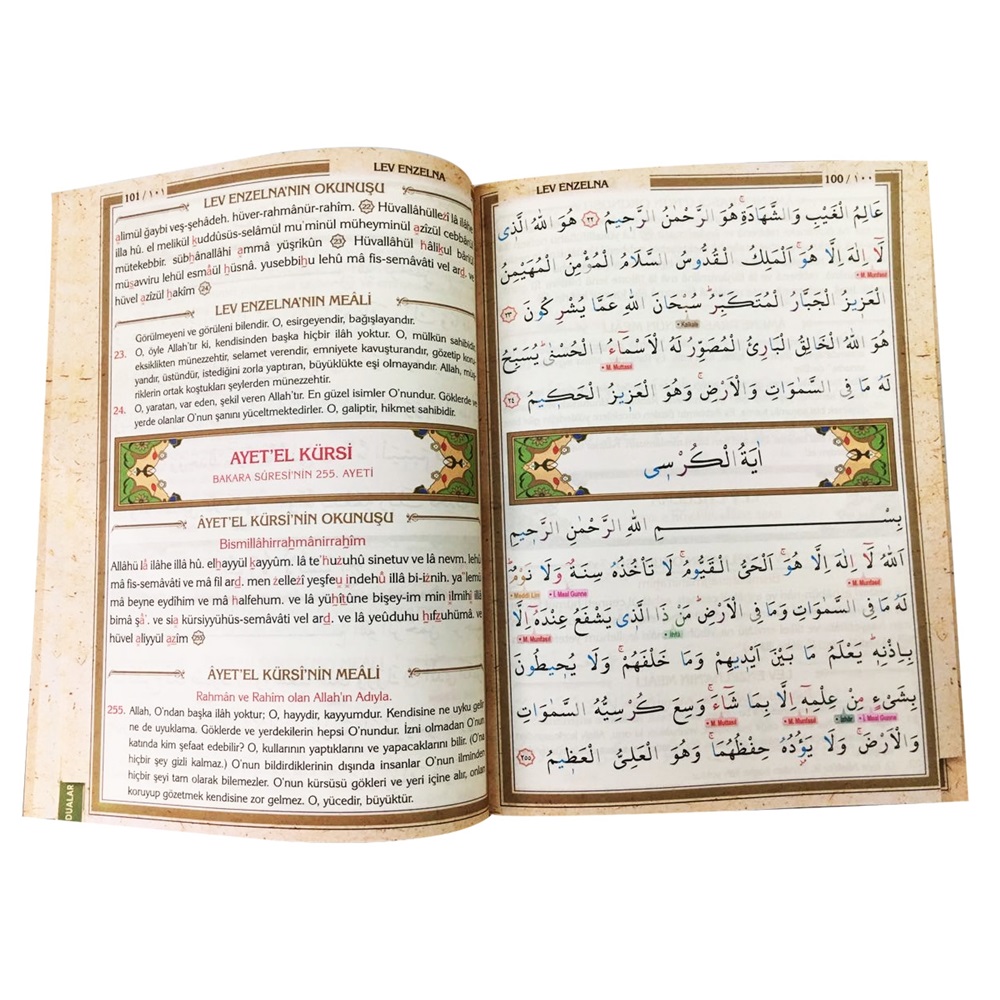 LEV ENZELNA
101 / ١٠١
LEV ENZELNA'NIN OKUNUŞU
alimül ğaybi veş-şehâdeh. hüver-rahmânür-rahîm. 22 Hüvallâhüllezî lâ ilâhe
illa hû. el melikül kuddûsüs-selâmül mu'minül müheyminül azîzül cebbârül
mütekebbir. sübhânallâhi ammâ yüşrikûn 23 Hüvallâhül hâlikul bâriül
müsavviru lehül esmâül hüsnâ. yusebbihu lehû mâ fis-semâvâti vel ard. ve
hüvel azîzül hakîm 24
LEV ENZELNA'NIN MEÂLİ
Görülmeyeni ve görüleni bilendir. O, esirgeyendir, bağışlayandır.
23. O, öyle Allah'tır ki, kendisinden başka hiçbir ilâh yoktur. O, mülkün sahibidir,
eksiklikten münezzehtir, selamet verendir, emniyete kavuşturandır, gözetip koru-
yandır, üstündür, istediğini zorla yaptıran, büyüklükte eşi olmayandır. Allah, müş-
riklerin ortak koştukları şeylerden münezzehtir.
24. O, yaratan, var eden, şekil veren Allah'tır. En güzel isimler O'nundur. Göklerde ve
yerde olanlar O'nun şanını yüceltmektedirler. O, galiptir, hikmet sahibidir.
AYET'EL KÜRSİ
BAKARA SÛRESİ'NİN 255. AYETİ
ÂYET'EL KÜRSİ'NİN OKUNUŞU
Bismillâhirrahmânirrahîm
Allâhü lâ ilâhe illâ hû. elhayyül kayyûm. lâ te'huzuhû sinetuv ve lâ nevm. lehû
mâ fis-semâvâti ve mâ fil ard. men zellezî yeşfeu indehû illâ bi-iznih. ya'lemu
mâ beyne eydîhim ve mâ halfehum. ve lâ yühîtûne bişey-im min ilmihî illâ
bimâ şâ'. ve sia kürsiyyühüs-semâvâti vel ard. ve lâ yeûduhu hıfzuhümâ. ve
hüvel aliyyül azîm 255
ÂYET'EL KÜRSİ'NİN MEÂLİ
Rahmân ve Rahîm olan Allah'ın Adıyla.
255. Allah, O'ndan başka ilâh yoktur; O, hayydir, kayyumdur. Kendisine ne uyku gelir
ne de uyuklama. Göklerde ve yerdekilerin hepsi O'nundur. İzni olmadan O'nun
katında kim şefaat edebilir? O, kullarının yaptıklarını ve yapacaklarını bilir. (O'na
hiçbir şey gizli kalmaz.) O'nun bildirdiklerinin dışında insanlar O'nun ilminden
hiçbir şeyi tam olarak bilemezler. O'nun kürsüsü gökleri ve yeri içine alır, onları
koruyup gözetmek kendisine zor gelmez. O, yücedir, büyüktür.
DUALAR
LEV ENZELNA
100 / ١٠٠
عَالِمُ الْغَيْبِ وَالشَّهَادَةِۚ هُوَ الرَّحْمٰنُ الرَّحٖيمُ ٢٢ هُوَ اللّٰهُ الَّذٖى
لَٓا اِلٰهَ اِلَّا هُوَۚ اَلْمَلِكُ الْقُدُّوسُ السَّلَامُ الْمُؤْمِنُ الْمُهَيْمِنُ
M. Munfasıl
الْعَزٖيزُ الْجَبَّارُ الْمُتَكَبِّرُؕ سُبْحَانَ اللّٰهِ عَمَّا يُشْرِكُونَ ٢٣
Kalkale
هُوَ اللّٰهُ الْخَالِقُ الْبَارِئُ الْمُصَوِّرُ لَهُ الْاَسْمَٓاءُ الْحُسْنٰىؕ يُسَبِّحُ
M. Muttasıl
لَهُ مَا فِى السَّمٰوَاتِ وَالْاَرْضِۚ وَهُوَ الْعَزٖيزُ الْحَكٖيمُ ٢٤
اٰيَةُ الْكُرْسِى
بِسْمِ اللّٰهِ الرَّحْمٰنِ الرَّحٖيمِ
اَللّٰهُ لَٓا اِلٰهَ اِلَّا هُوَۚ اَلْحَىُّ الْقَيُّومُۚ لَا تَاْخُذُهُ سِنَةٌ وَلَا نَوْمٌؕ
M. Munfasıl İ. Meal Gunne Meddi Lin
لَهُ مَا فِى السَّمٰوَاتِ وَمَا فِى الْاَرْضِؕ مَنْ ذَا الَّذٖى يَشْفَعُ عِنْدَهُٓ اِلَّا
İhfâ M. Munfasıl
بِاِذْنِهٖؕ يَعْلَمُ مَا بَيْنَ اَيْدٖيهِمْ وَمَا خَلْفَهُمْۚ وَلَا يُحٖيطُونَ
بِشَىْءٍ مِنْ عِلْمِهٖٓ اِلَّا بِمَا شَٓاءَۚ وَسِعَ كُرْسِيُّهُ السَّمٰوَاتِ
İ. Meal Gunne İzhâr M. Munfasıl M. Muttasıl
وَالْاَرْضَۚ وَلَا يَؤُدُهُ حِفْظُهُمَاۚ وَهُوَ الْعَلِىُّ الْعَظٖيمُ ٢٥٥